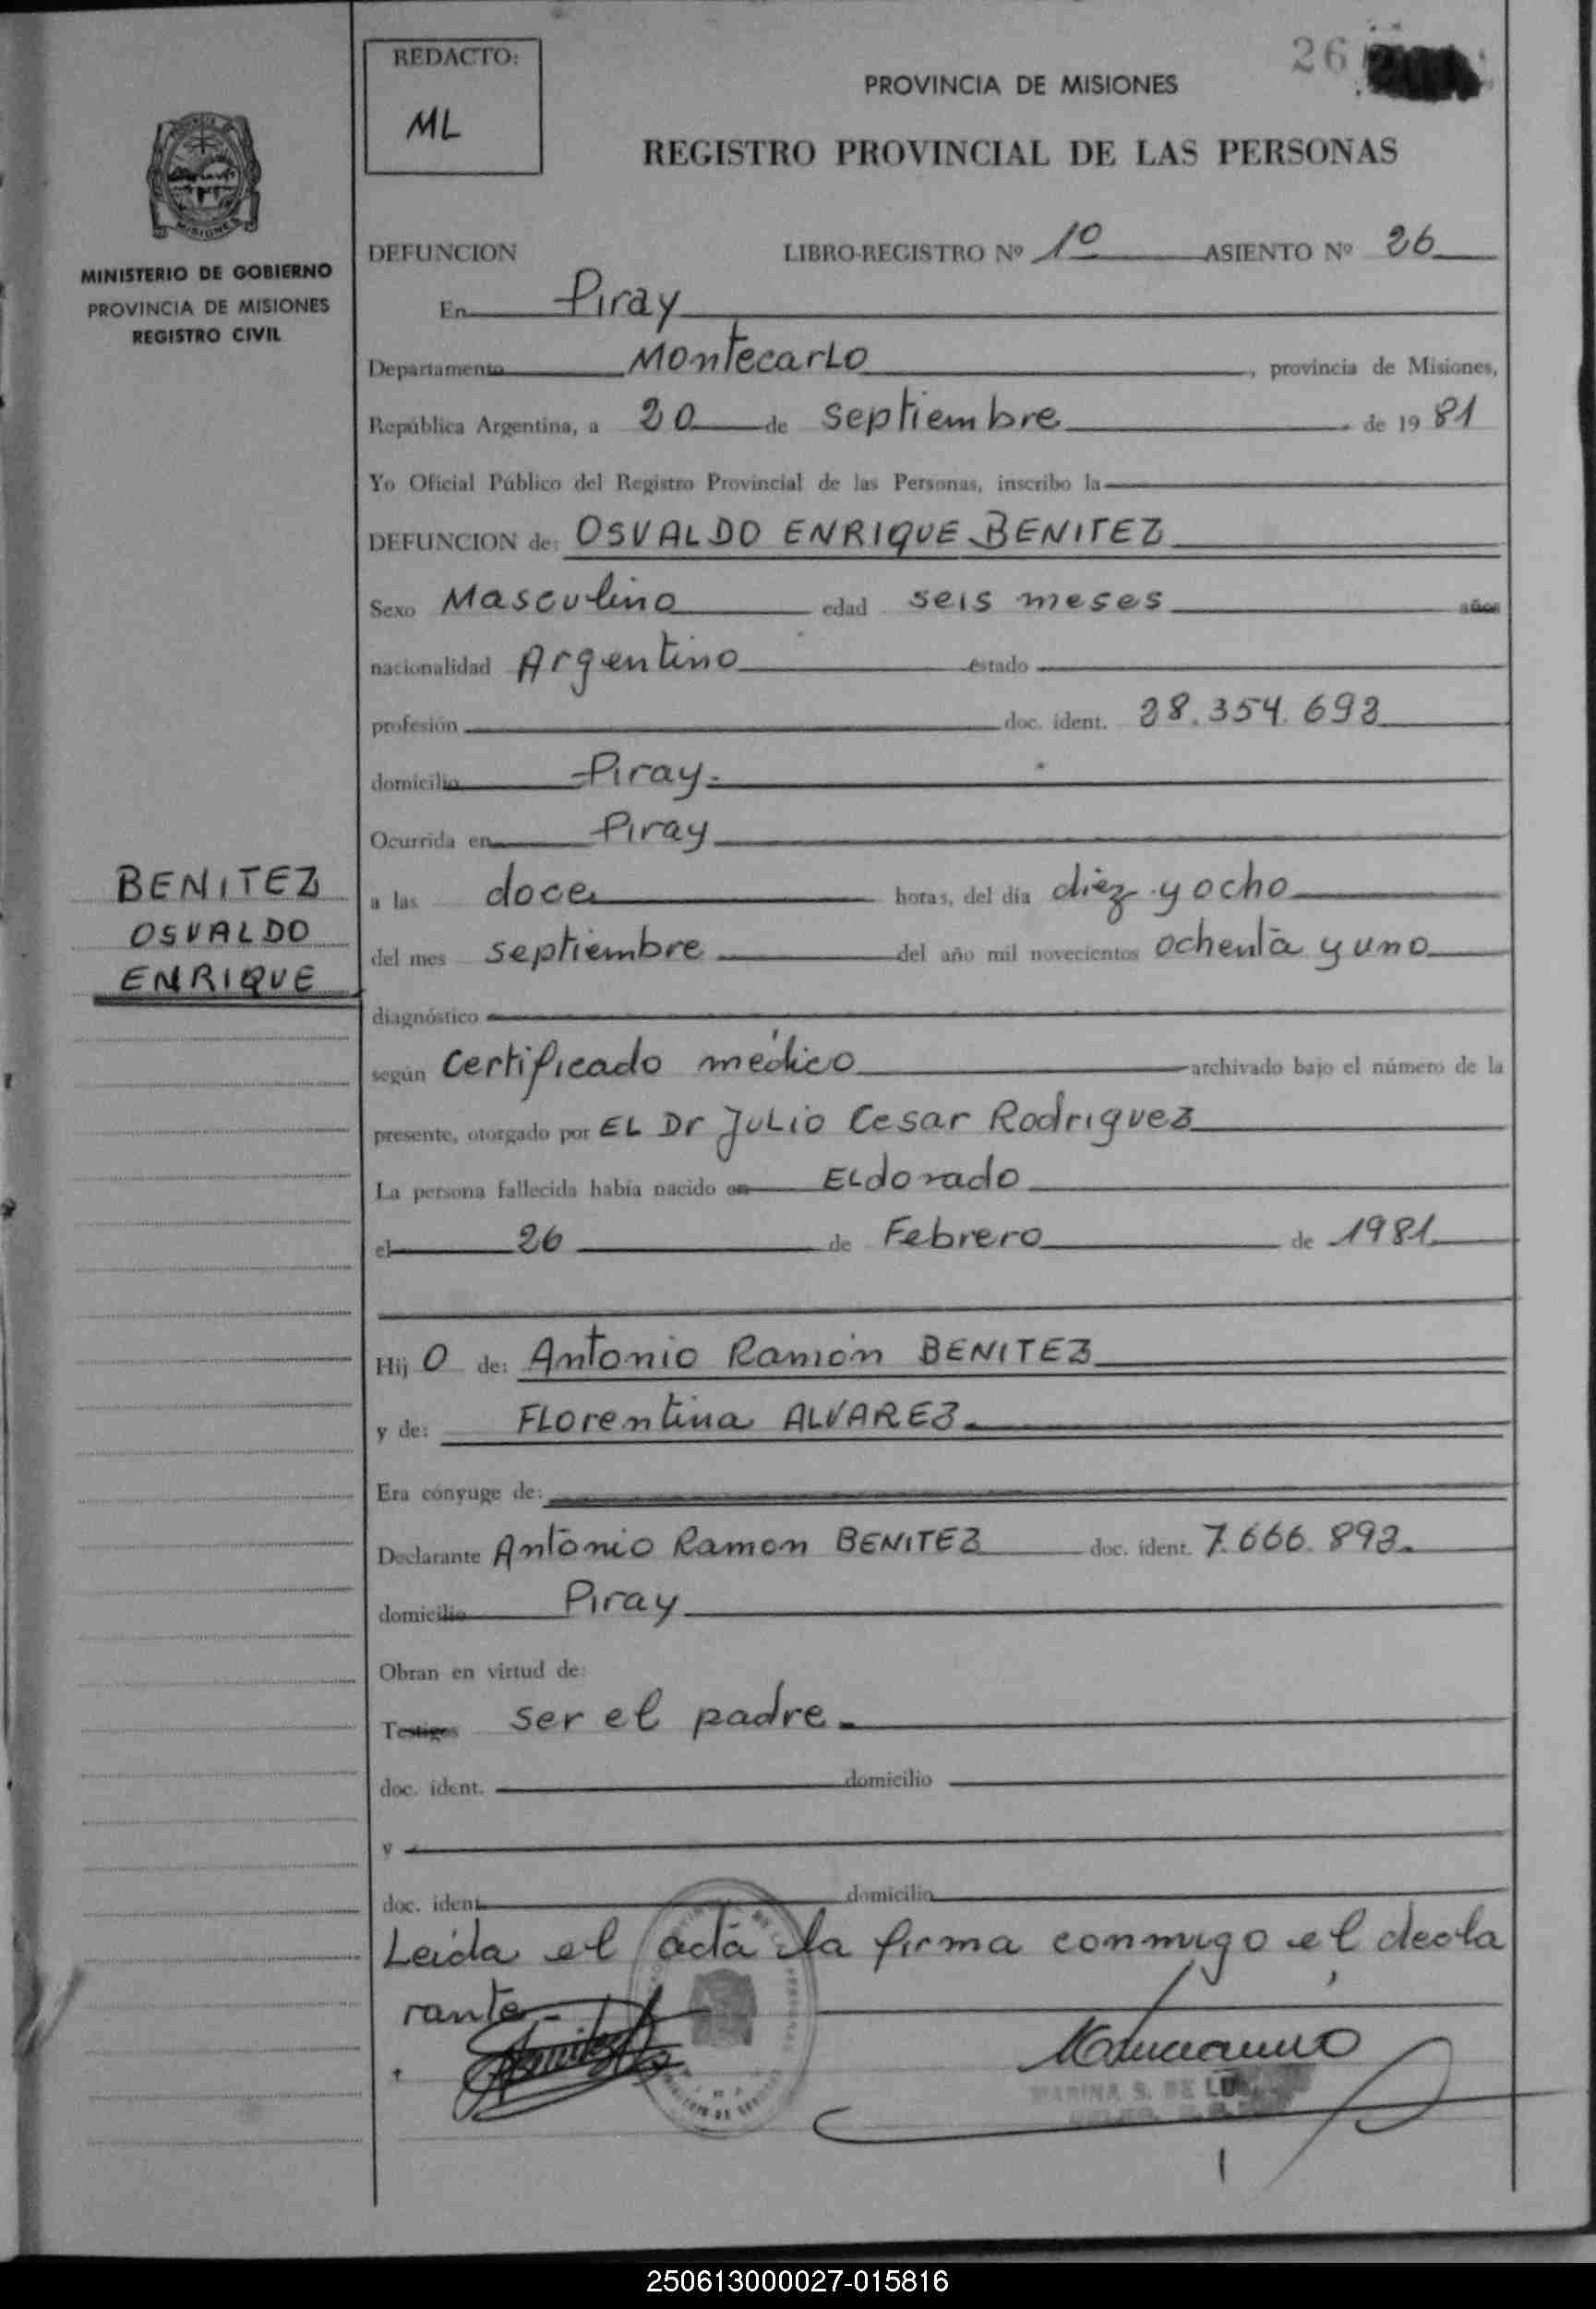 REDACTO:
ML
26
PROVINCIA DE MISIONES
REGISTRO PROVINCIAL DE LAS PERSONAS
MISIONES
MINISTERIO DE GOBIERNO
PROVINCIA DE MISIONES
REGISTRO CIVIL
DEFUNCION LIBRO-REGISTRO Nº 1º ASIENTO Nº 26
En Piray
Departamento Montecarlo, provincia de Misiones,
República Argentina, a 20 de septiembre de 1981
Yo Oficial Público del Registro Provincial de las Personas, inscribo la
DEFUNCION de: OSVALDO ENRIQUE BENITEZ
Sexo Masculino edad seis meses años
nacionalidad Argentino estado
profesión doc. ident. 28.354.692
domicilio Piray.
Ocurrida en Piray
BENITEZ
OSVALDO
ENRIQUE
a las doce horas, del día diez y ocho
del mes septiembre del año mil novecientos ochenta y uno
diagnóstico
según Certificado médico archivado bajo el número de la
presente, otorgado por EL Dr Julio Cesar Rodriguez
La persona fallecida había nacido en Eldorado
el 26 de Febrero de 1981
Hij o de: Antonio Ramón BENITEZ
y de: Florentina ALVAREZ
Era cónyuge de:
Declarante Antonio Ramon BENITEZ doc. ident. 7.666.893.
domicilio Piray
Obran en virtud de:
Testigos ser el padre.
doc. ident. domicilio
y
doc. ident. domicilio
Leida el acta la firma conmigo el decla
rante.
MARINA S. DE
250613000027-015816